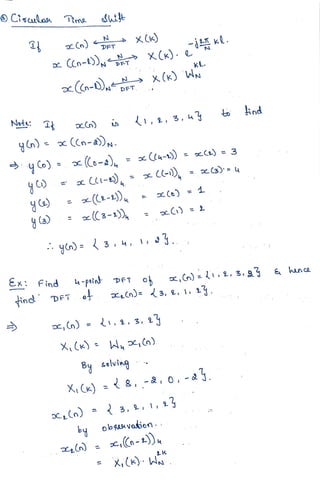 ⑧ Circular Time Shift
If x(n) ⟷ X(K)
N DFT
x((n-l))N ⟷ X(K). e^(-j 2π/N kl).
N DFT
x((n-l))N ⟷ X(K) WN^kl
N DFT
Note: If x(n) is {1, 2, 3, 4} to find
y(n) = x((n-2))N.
⇒ y(0) = x((0-2))4 = x((4-2)) = x(2) = 3
y(1) = x((1-2))4 = x((-1))4 = x(3) = 4
y(2) = x((2-2))4 = x(0) = 1
y(3) = x((3-2))4 = x(1) = 2
∴ y(n) = {3, 4, 1, 2}.
Ex: Find 4-point DFT of x1(n) = {1, 2, 3, 2} & hence
find DFT of x2(n) = {3, 2, 1, 2}.
⇒ x1(n) = {1, 2, 3, 2}
X1(K) = W4 x1(n)
By solving ..
X1(K) = {8, -2, 0, -2}.
x2(n) = {3, 2, 1, 2}
by observation..
x2(n) = x1((n-2))4
= X1(K). WN^2K